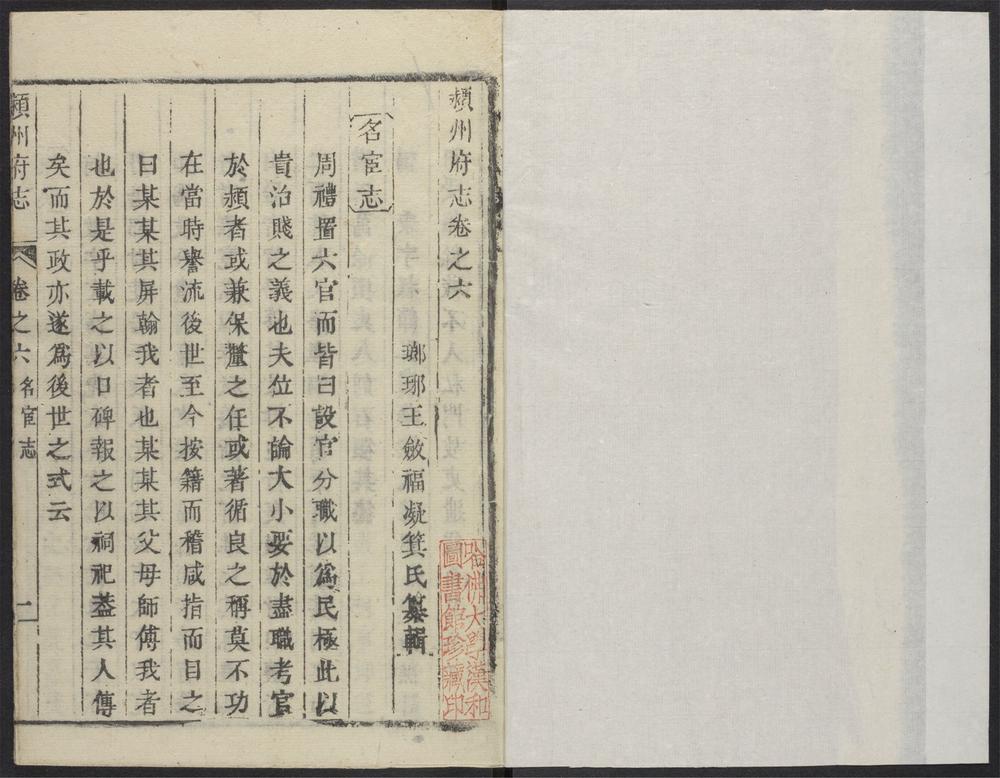 頴州府志卷之六
瑯琊王斂福凝箕氏纂輯
名宦志
周禮置六官而皆曰設官分職以爲民極此以
貴治賤之義也夫位不論大小要於盡職考官
於頴者或兼保釐之任或著循良之稱莫不功
在當時譽流後世至今按籍而稽咸指而目之
曰某某其屏翰我者也某某其父母師傅我者
也於是乎載之以口碑報之以祠祀葢其人傳
矣而其政亦遂爲後世之式云
頴州府志
卷之六
名宦志
一
哈佛大學漢和
圖書館珍藏印